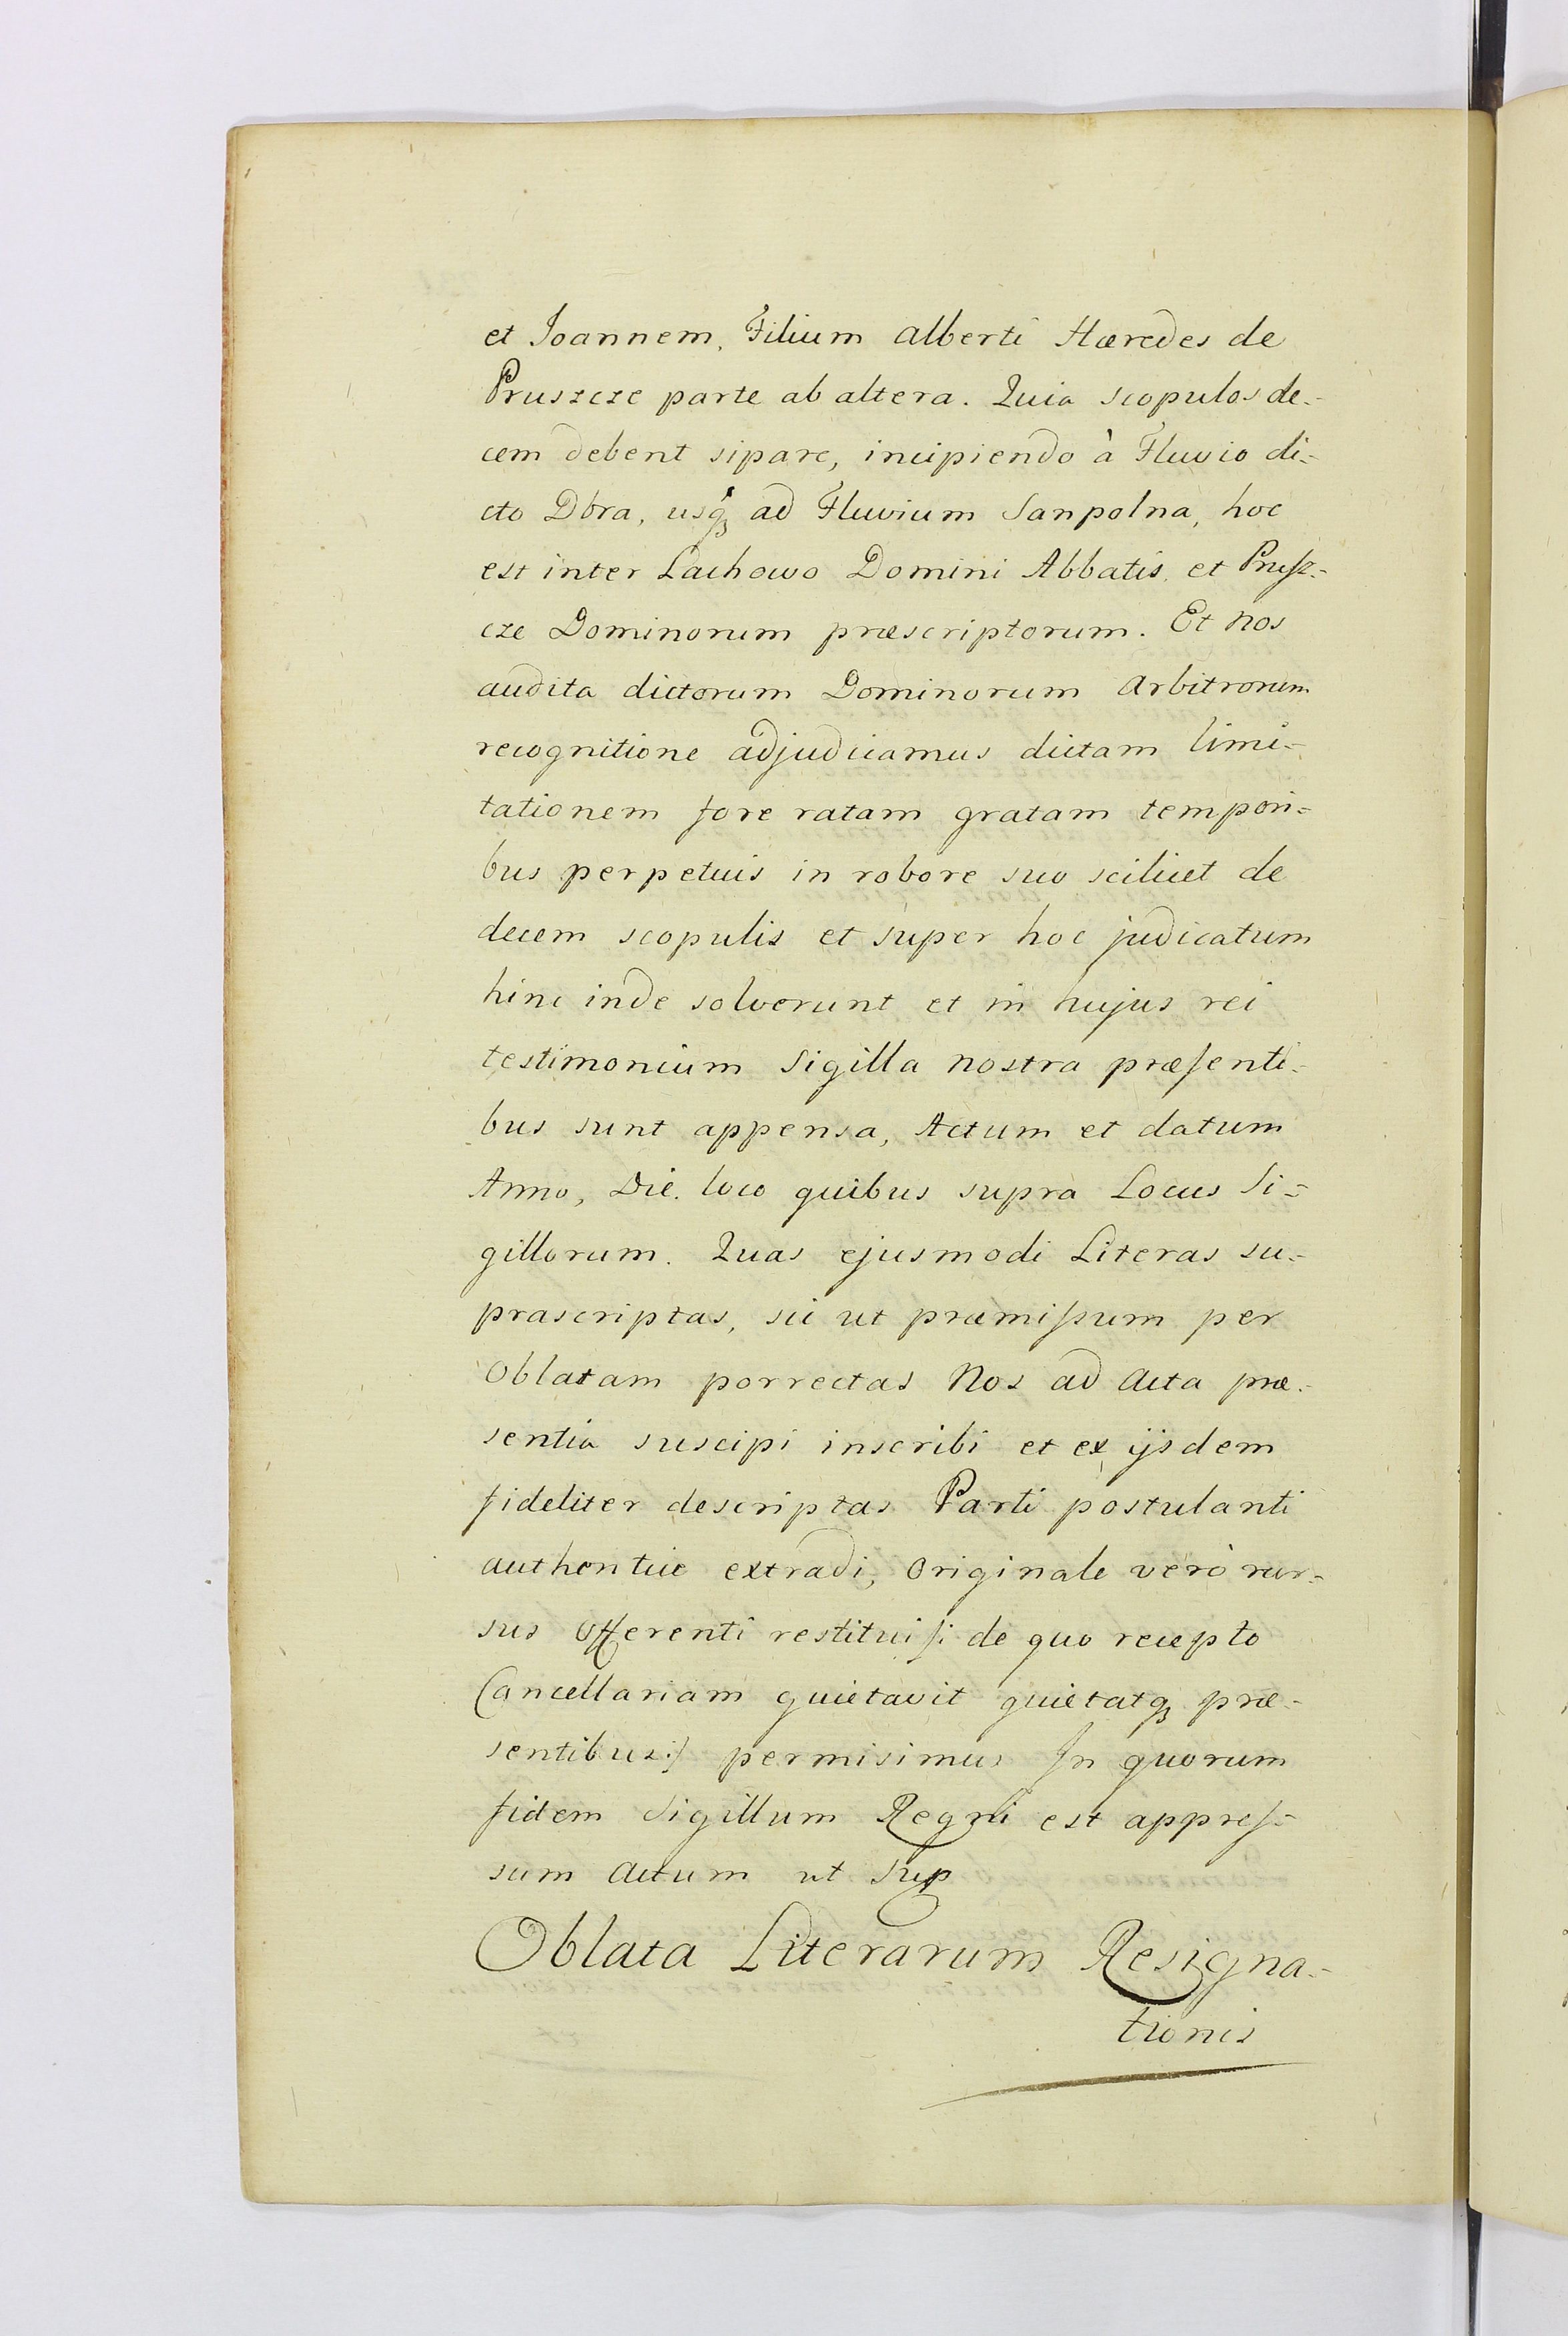 et Joannem, Filium Alberti Hæredes de
Pruszcze parte ab altera. Quia scopulos de-
cem debent sipare, incipiendo à Fluvio di-
cto Dbra, usq́ꝫ ad Fluvium Sanpolna, hoc
est inter Lachowo Domini Abbatis, et Prusz-
cze Dominorum præscriptorum. Et nos
audita dictorum Dominorum Arbitrorum
recognitione adjudicamus dictam limi-
tationem fore ratam gratam tempori-
bus perpetuis in robore suo scilicet de
decem scopulis et super hoc judicatum
hinc inde solverunt et in hujus rei
testimonium Sigilla nostra præſenti-
bus sunt appensa, Actum et datum
Anno, Die. loco quibus supra Locus Si-
gillorum. Quas ejusmodi Literas su-
prascriptas, sic ut præmiſsum per
Oblatam porrectas Nos ad Acta præ-
sentia suscipi inscribi et ex ijsdem
fideliter descriptas Parti postulanti
authentice extradi, Originale verò rur-
sus Offerenti restitui /: de quo recepto
Cancellariam quietavit quietatqꝫ præ-
sentibus :/ permisimus In quorum
fidem Sigillum Regni est appreſ-
sum Actum ut Sup
Oblata Literarum Resigna-
tionis